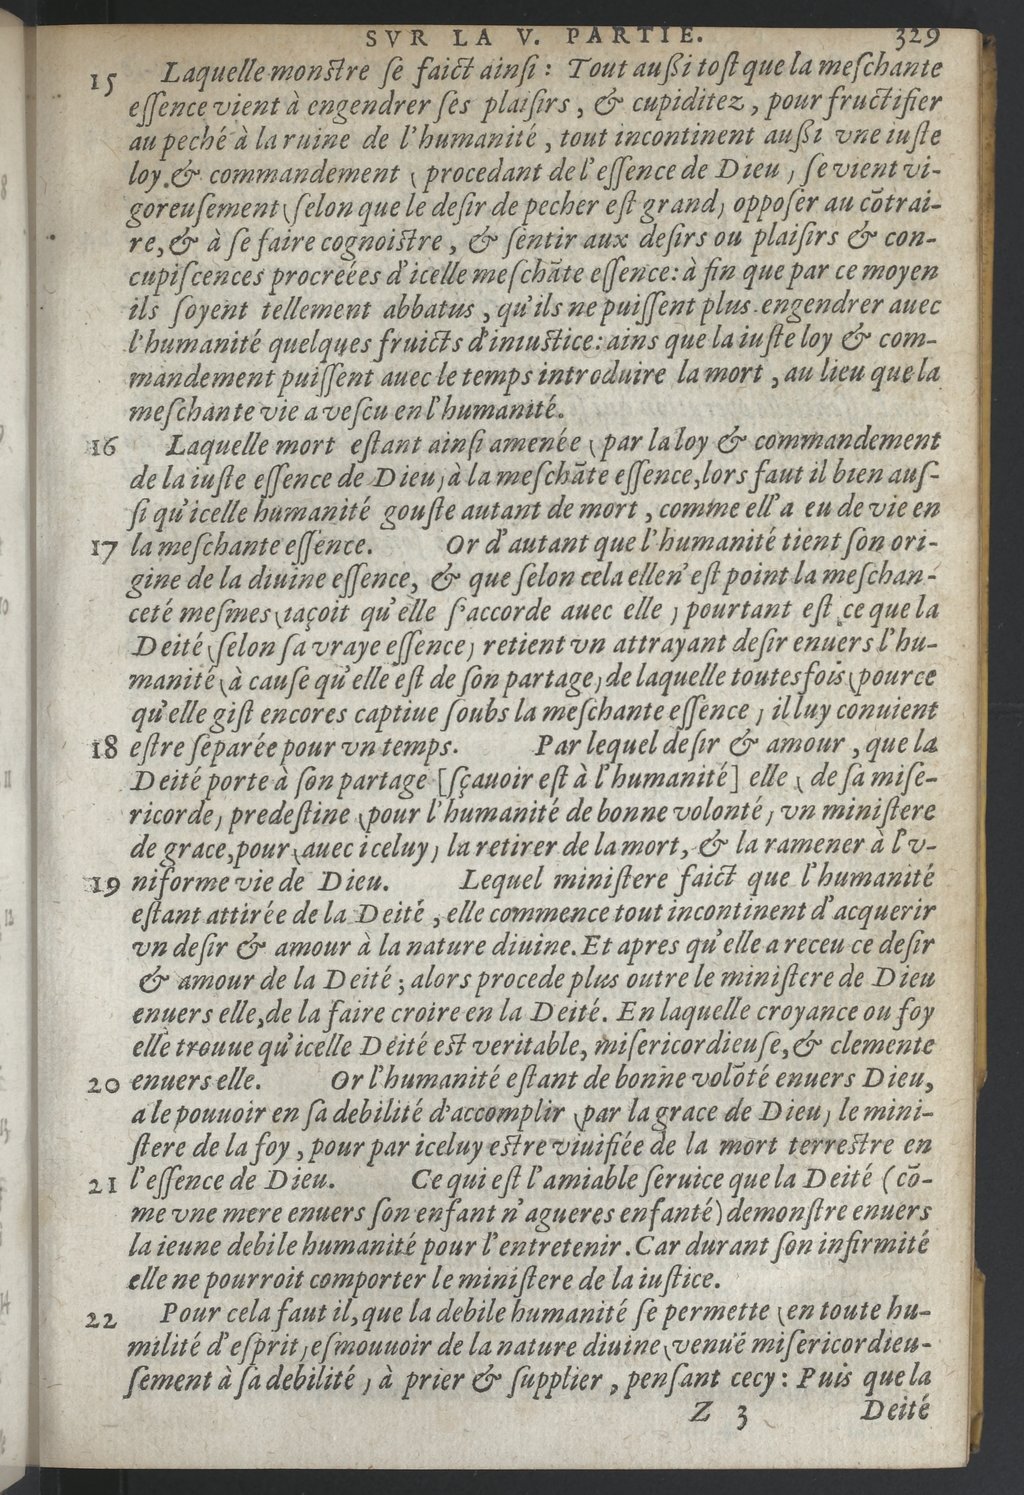 SVR LA V. PARTIE. 329
15 Laquelle monſtre ſe faict ainſi : Tout außi toſt que la meſchante
eſſence vient à engendrer ſes plaiſirs , & cupiditez , pour fructifier
au peché à la ruine de l'humanité , tout incontinent außi vne iuſte
loy & commandement ( procedant de l'eſſence de Dieu ) ſe vient vi-
goreuſement (ſelon que le deſir de pecher eſt grand) oppoſer au cõtrai-
re, & à ſe faire cognoiſtre , & ſentir aux deſirs ou plaiſirs & con-
cupiſcences procréées d'icelle meſchãte eſſence: à fin que par ce moyen
ils ſoyent tellement abbatus , qu'ils ne puiſſent plus engendrer auec
l'humanité quelques fruicts d'iniuſtice: ains que la iuſte loy & com-
mandement puiſſent auec le temps introduire la mort , au lieu que la
meſchante vie a veſcu en l'humanité.
16 Laquelle mort eſtant ainſi amenée (par la loy & commandement
de la iuſte eſſence de Dieu) à la meſchãte eſſence, lors faut il bien auſ-
ſi qu'icelle humanité gouſte autant de mort , comme ell'a eu de vie en
17 la meſchante eſſence. Or d'autant que l'humanité tient ſon ori-
gine de la diuine eſſence, & que ſelon cela elle n'eſt point la meſchan-
ceté meſmes (iaçoit qu'elle ſ'accorde auec elle ) pourtant eſt ce que la
Deité (ſelon ſa vraye eſſence) retient vn attrayant deſir enuers l'hu-
manité (à cauſe qu'elle eſt de ſon partage) de laquelle toutesfois (pource
qu'elle giſt encores captiue ſoubs la meſchante eſſence ) il luy conuient
18 eſtre ſeparée pour vn temps. Par lequel deſir & amour , que la
Deité porte à ſon partage [ſçauoir eſt à l'humanité] elle ( de ſa miſe-
ricorde) predeſtine (pour l'humanité de bonne volonté) vn miniſtere
de grace, pour (auec iceluy) la retirer de la mort, & la ramener à l'v-
19 niforme vie de Dieu. Lequel miniſtere faict que l'humanité
eſtant attirée de la Deité , elle commence tout incontinent d'acquerir
vn deſir & amour à la nature diuine. Et apres qu'elle a receu ce deſir
& amour de la Deité ; alors procede plus outre le miniſtere de Dieu
enuers elle, de la faire croire en la Deité. En laquelle croyance ou foy
elle trouue qu'icelle Deité eſt veritable, miſericordieuſe, & clemente
20 enuers elle. Or l'humanité eſtant de bonne volõté enuers Dieu,
a le pouuoir en ſa debilité d'accomplir (par la grace de Dieu) le mini-
ſtere de la foy , pour par iceluy eſtre viuifiée de la mort terreſtre en
21 l'eſſence de Dieu. Ce qui eſt l'amiable ſeruice que la Deité (cõ-
me vne mere enuers ſon enfant n'agueres enfanté) demonſtre enuers
la ieune debile humanité pour l'entretenir. Car durant ſon infirmité
elle ne pourroit comporter le miniſtere de la iuſtice.
22 Pour cela faut il, que la debile humanité ſe permette (en toute hu-
milité d'eſprit) eſmouuoir de la nature diuine (venuë miſericordieu-
ſement à ſa debilité ) à prier & ſupplier , penſant cecy : Puis que la
Z 3 Deité